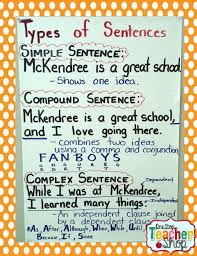 Types of Sentences
SIMPLE SENTENCE:
McKendree is a great school.
- Shows one idea.
COMPOUND SENTENCE:
McKendree is a great school,
and I love going there.
- combines two ideas
using a comma and conjunction
FANBOYS
COMPLEX SENTENCE - Dependent
While I was at McKendree,
I learned many things. - Independent
- An independent clause joined
by a dependent clause.
*As, After, Although, When, While, Until,
Because, If, Since
One Stop
Teacher
Shop